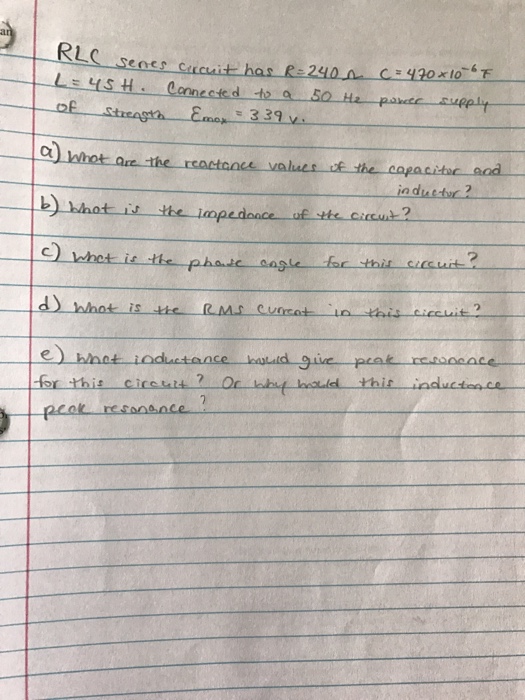 an
RLC series circuit has R=240 Ω C = 470 x 10⁻⁶ F
L = 45 H. Connected to a 50 Hz power supply
of strength Ɛmax = 339 v.
a) What are the reactance values of the capacitor and
inductor?
b) What is the impedance of the circuit?
c) What is the phase angle for this circuit?
d) What is the RMS current in this circuit?
e) What inductance would give peak resonance
for this circuit? Or why would this inductance
peak resonance?